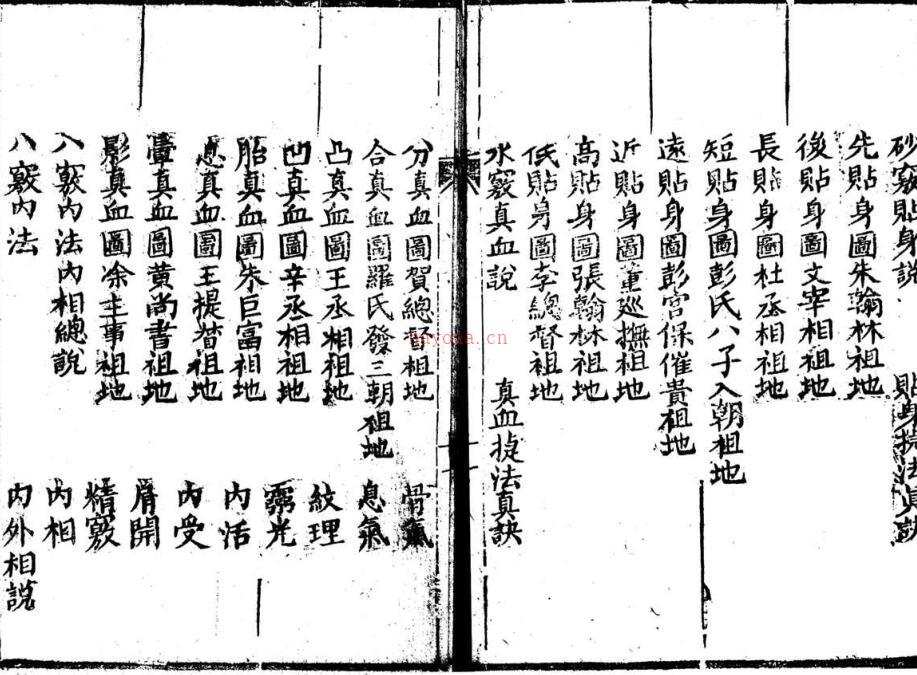 砂竅貼身說　貼身捷法真訣
先貼身圖朱翰林祖地
後貼身圖文宰相祖地
長貼身圖杜丞相祖地
短貼身圖彭氏八子入朝祖地
遠貼身圖彭宮保催貴祖地
近貼身圖董巡撫祖地
高貼身圖張翰林祖地
低貼身圖李總督祖地
水竅真血說　真血捷法真訣
分真血圖賀總督祖地　骨氣
合真血圖羅氏發三朝祖地　息氣
凸真血圖王丞相祖地　紋理
凹真血圖辛丞相祖地　霛光
胎真血圖朱巨富祖地　內活
息真血圖王提督祖地　內受
暈真血圖黃尚書祖地　肩開
影真血圖余主事祖地　精竅
八竅內法內相總說　內相
八竅內法　內外相說
nayona.cn